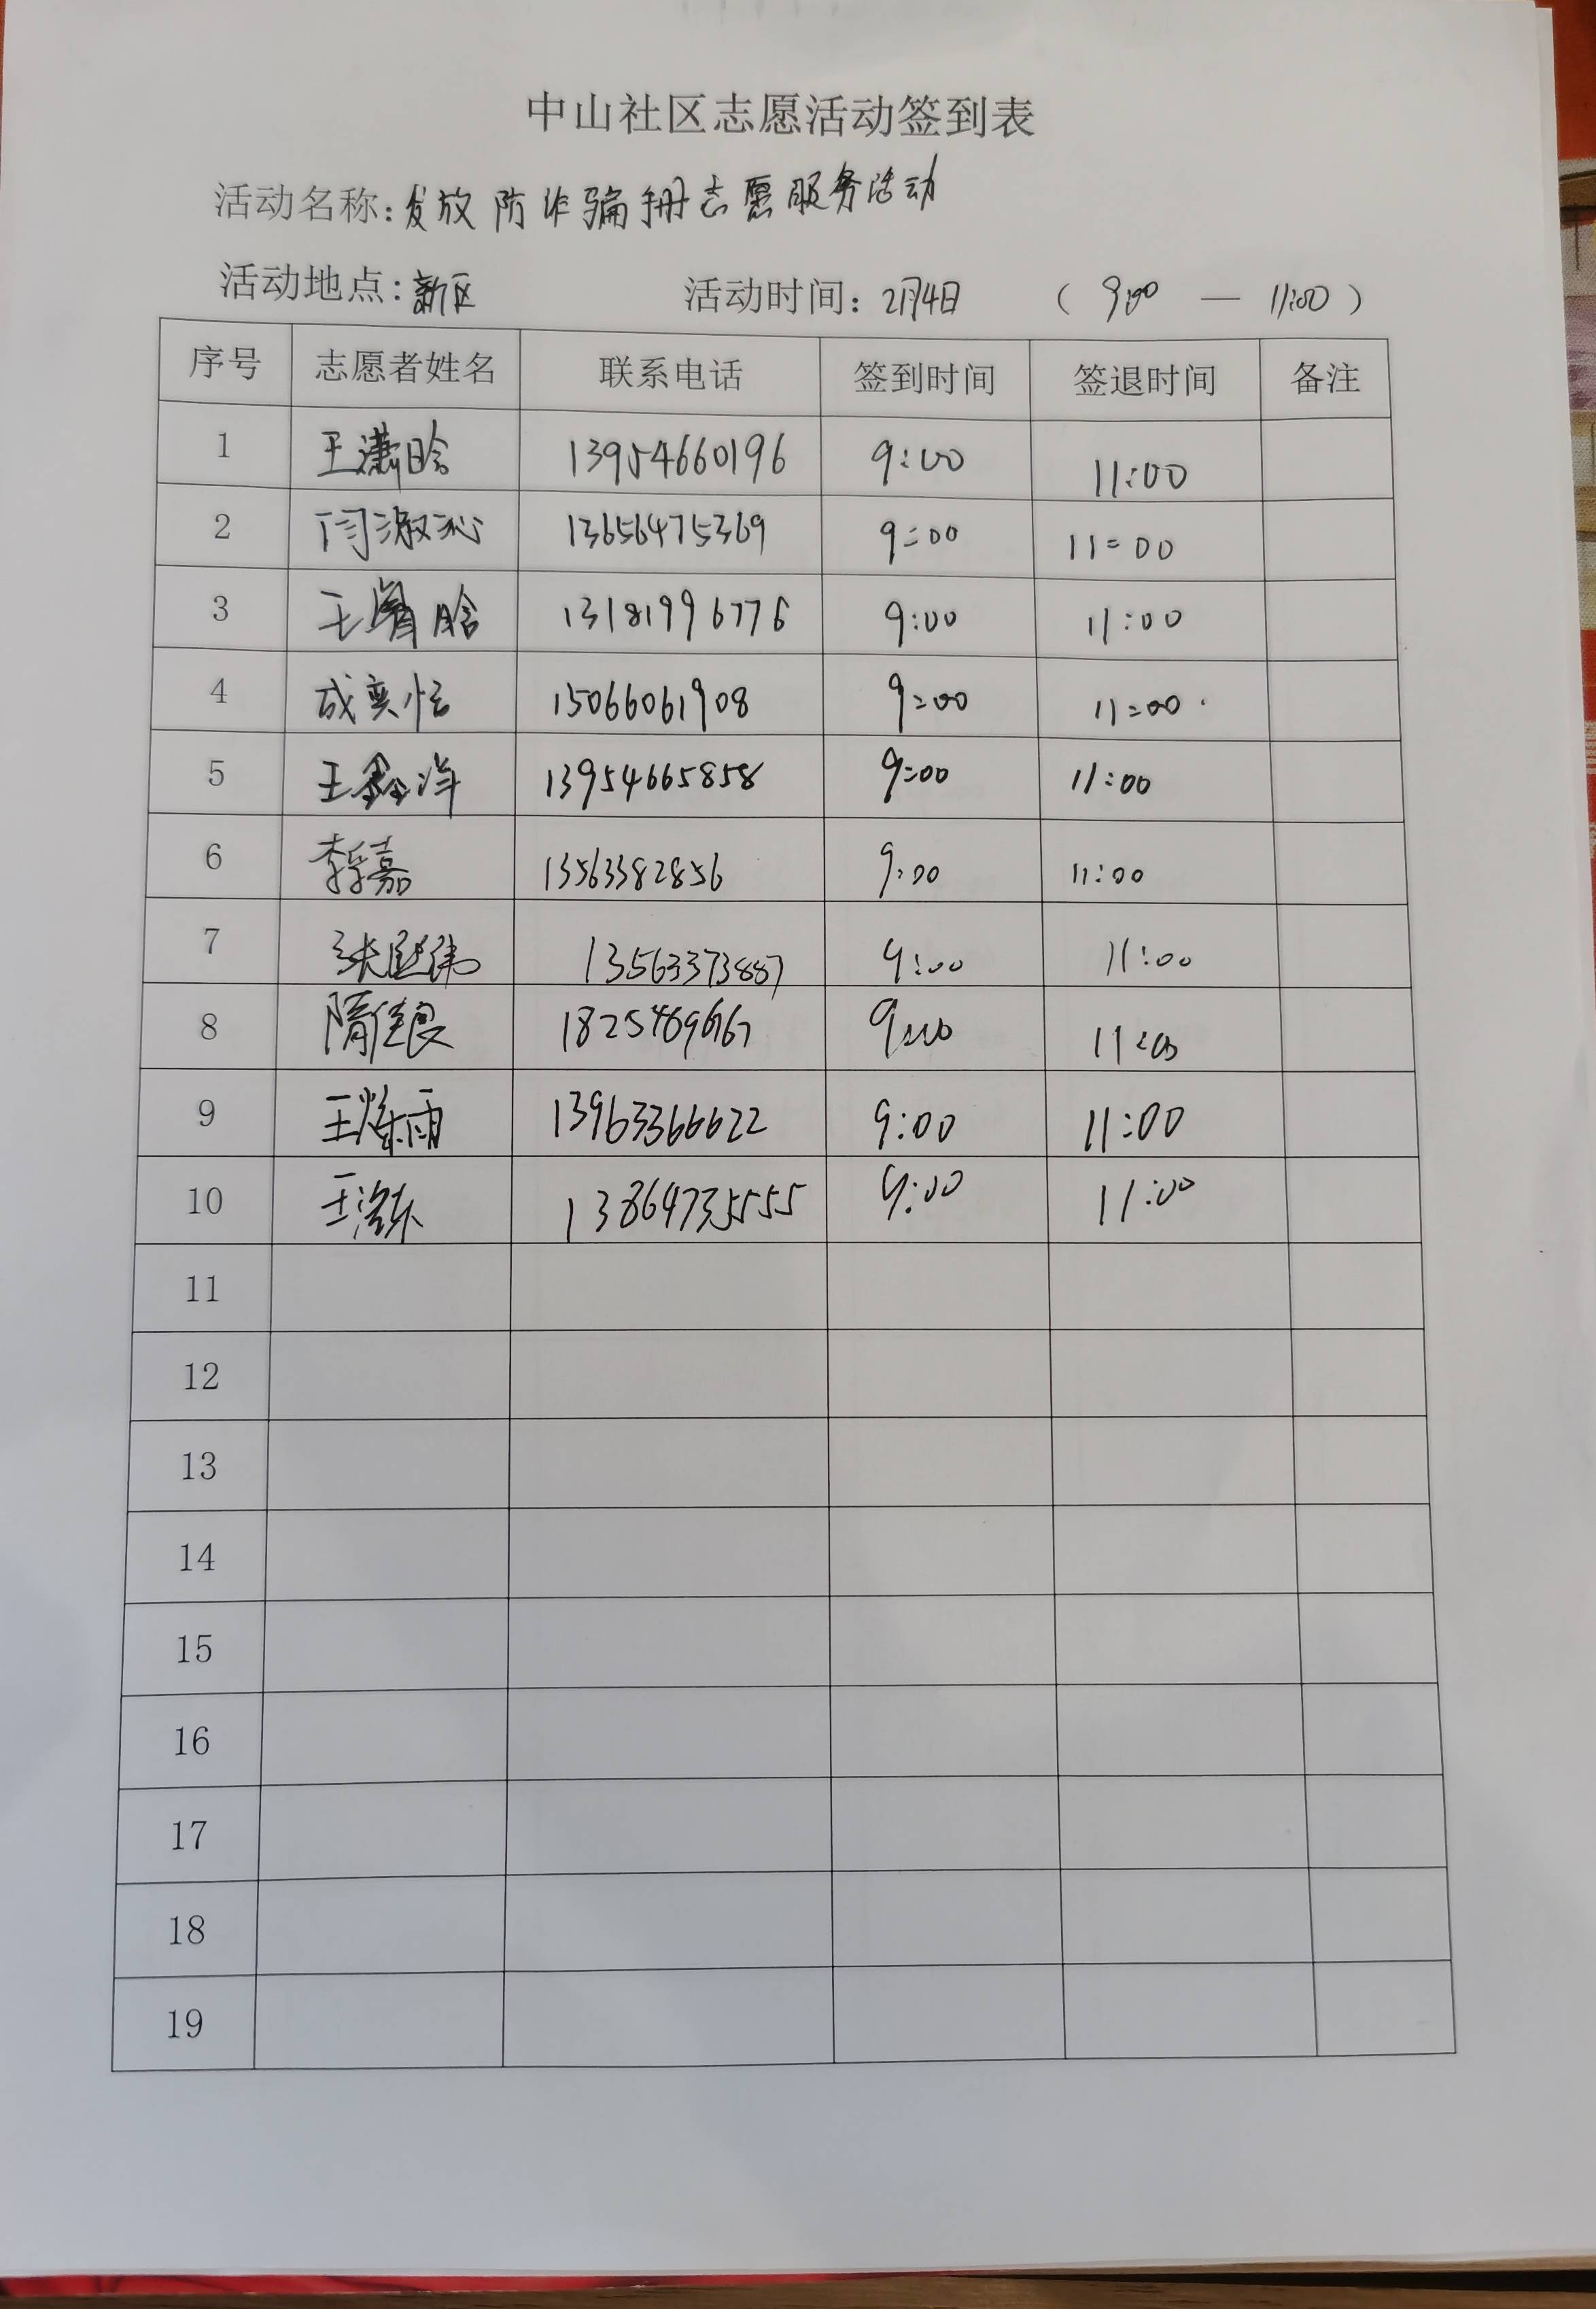 中山社区志愿活动签到表
活动名称:发放防诈骗手册志愿服务活动
活动地点:新区 活动时间: 2月4日 ( 9:00 — 11:00 )
序号 志愿者姓名 联系电话 签到时间 签退时间 备注
1 王潇晗 13954660196 9:00 11:00
2 闫淑沁 13656475369 9:00 11:00
3 王 晗 13181996776 9:00 11:00
4 成奕恬 15066061908 9:00 11:00
5 王鑫洋 13954665858 9:00 11:00
6 李 嘉 13563382856 9:00 11:00
7 张 伟 13563373887 9:00 11:00
8 隋佳良 9:00 11:00
9 王 雨 13963366622 9:00 11:00
10 王 13864735555 9:00 11:00
11
12
13
14
15
16
17
18
19